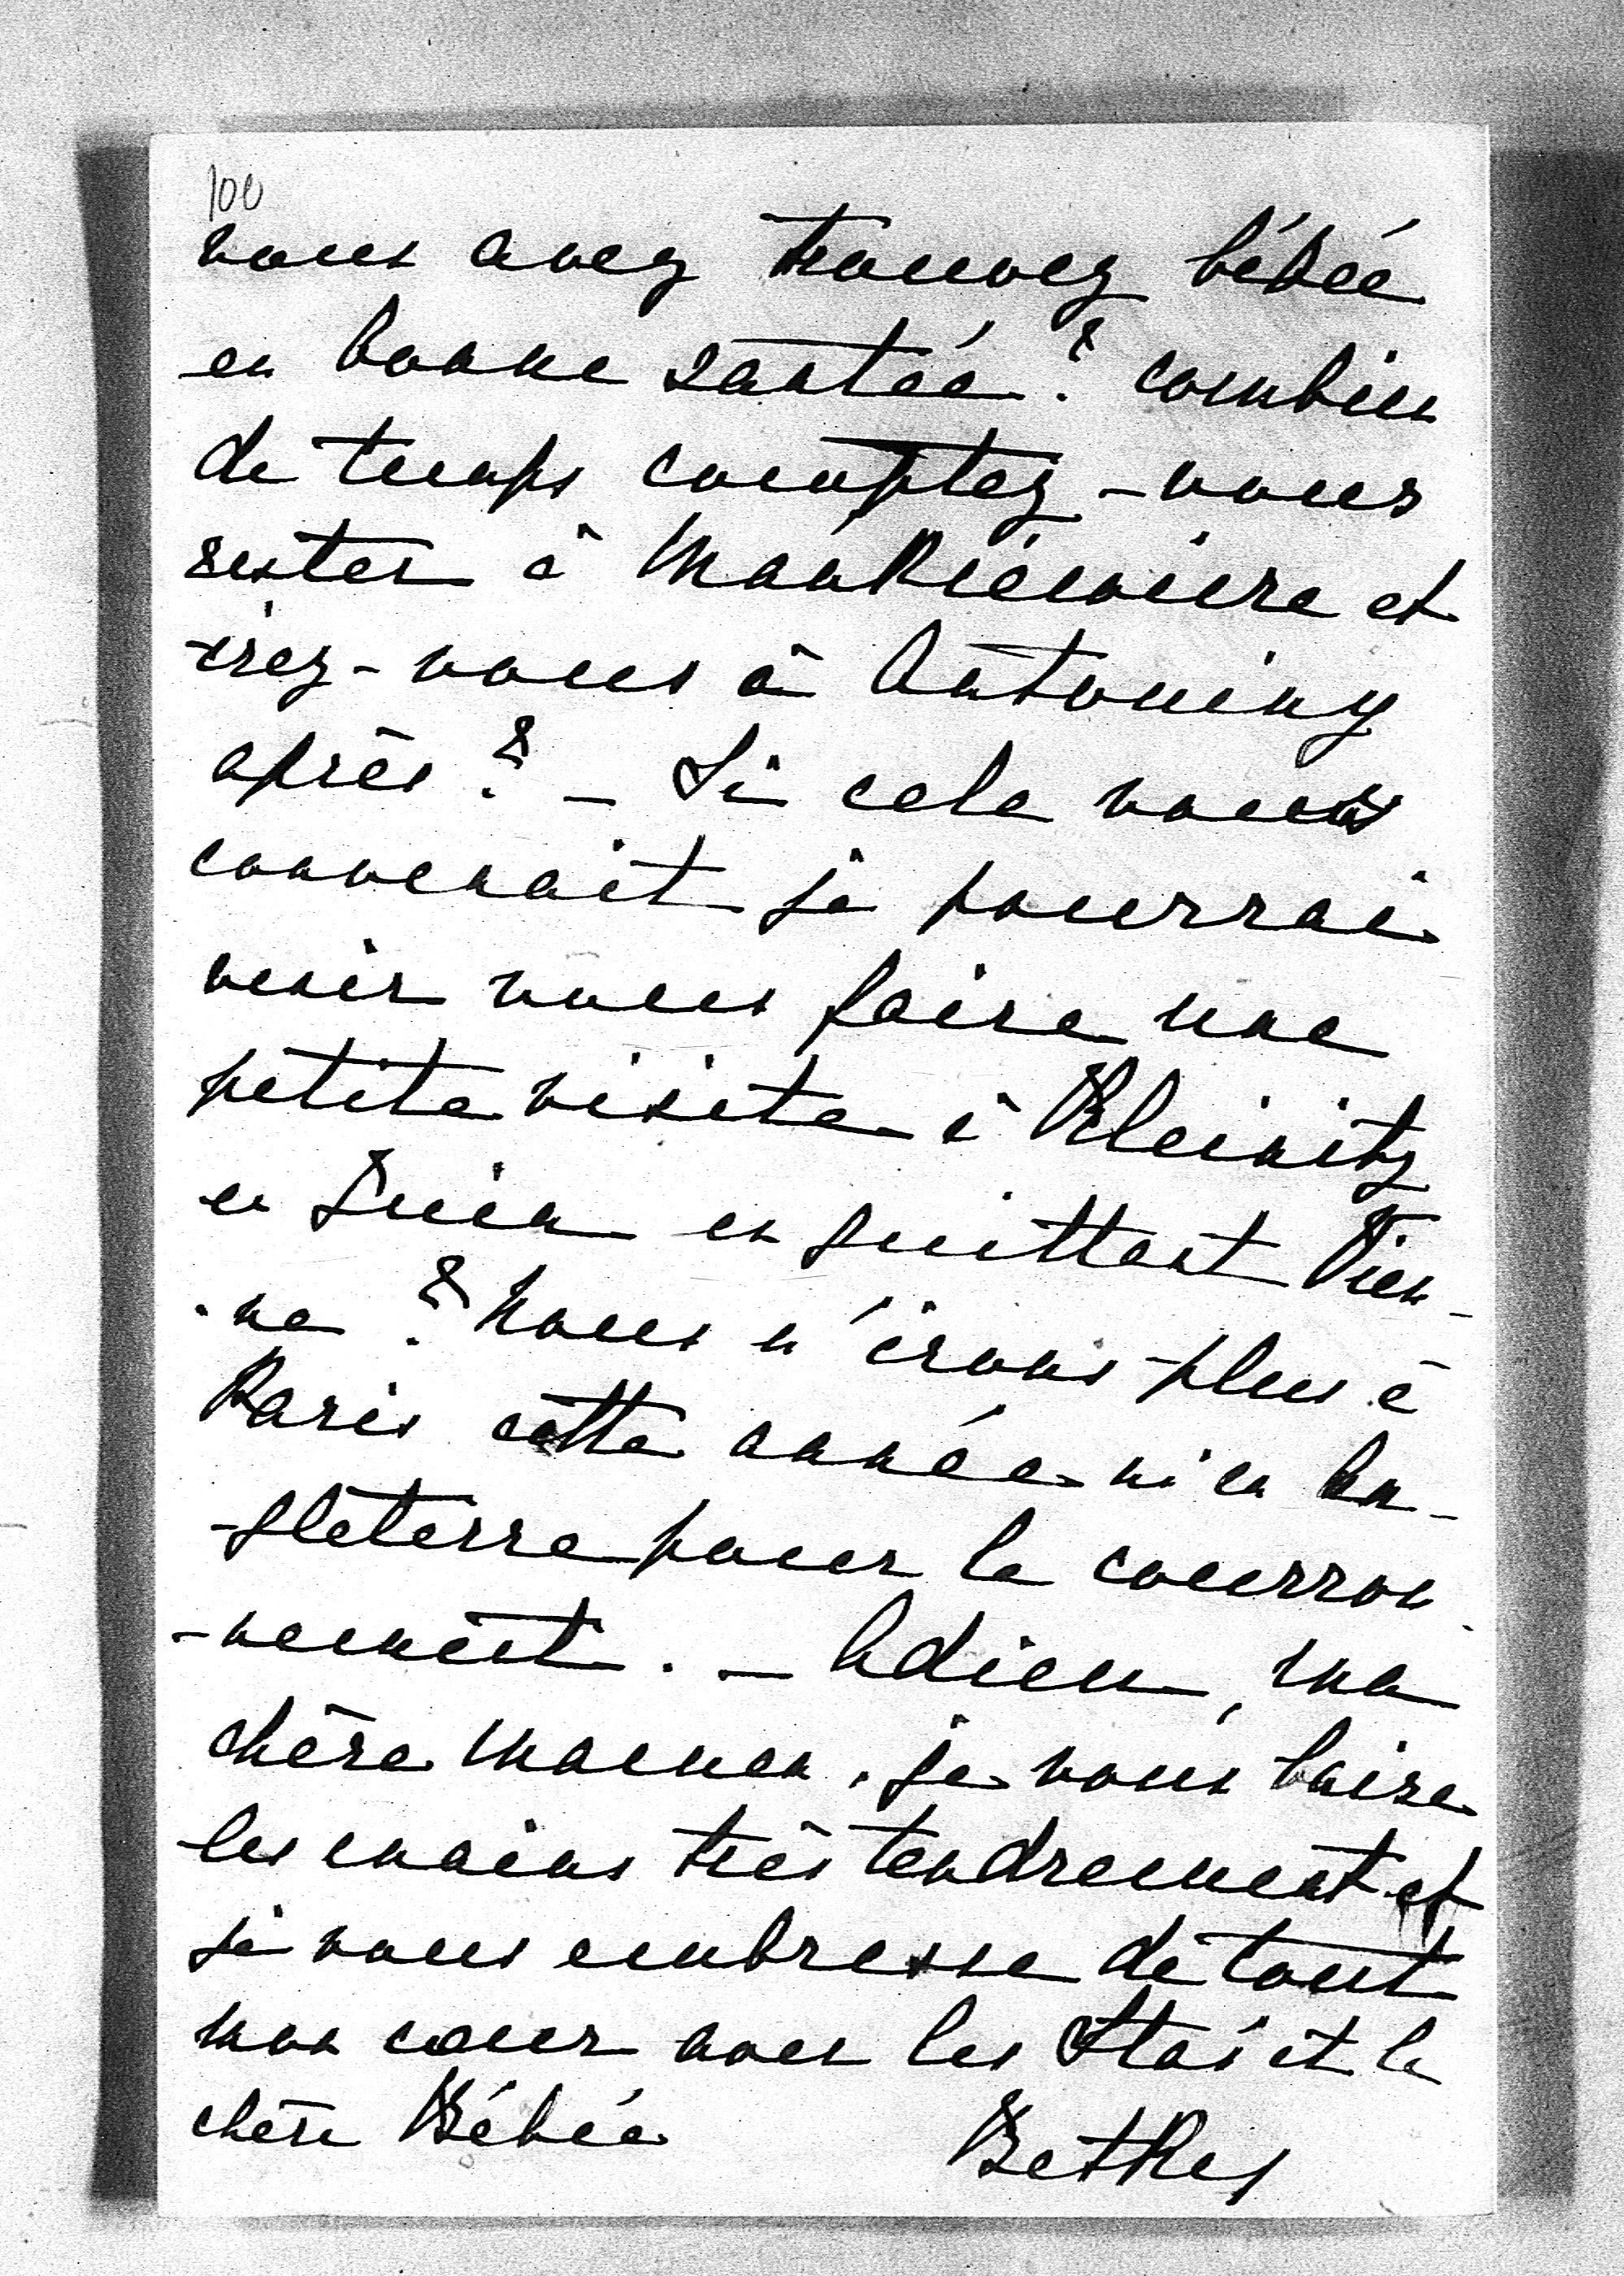 100
vous avez trouvez bébée
en bonne santée ? combien
de temps comptez-vous
rester à Mankiéwicze et
irez-vous à Antoniny
après ? _ Si cela vous
convenait je pourrai
venir vous faire une
petite visite à Kleinitz
en Juin en quittant Vien-
-ne ? Nous n'irons plus à
Paris cette année ni en An-
-gleterre pour le couron
-nement. _ Adieu, ma
chère Maman, je vous baise
les mains très tendrement et
je vous embrasse de tout
mon cœur avec les Stas et la
chère Bébée
Betkes